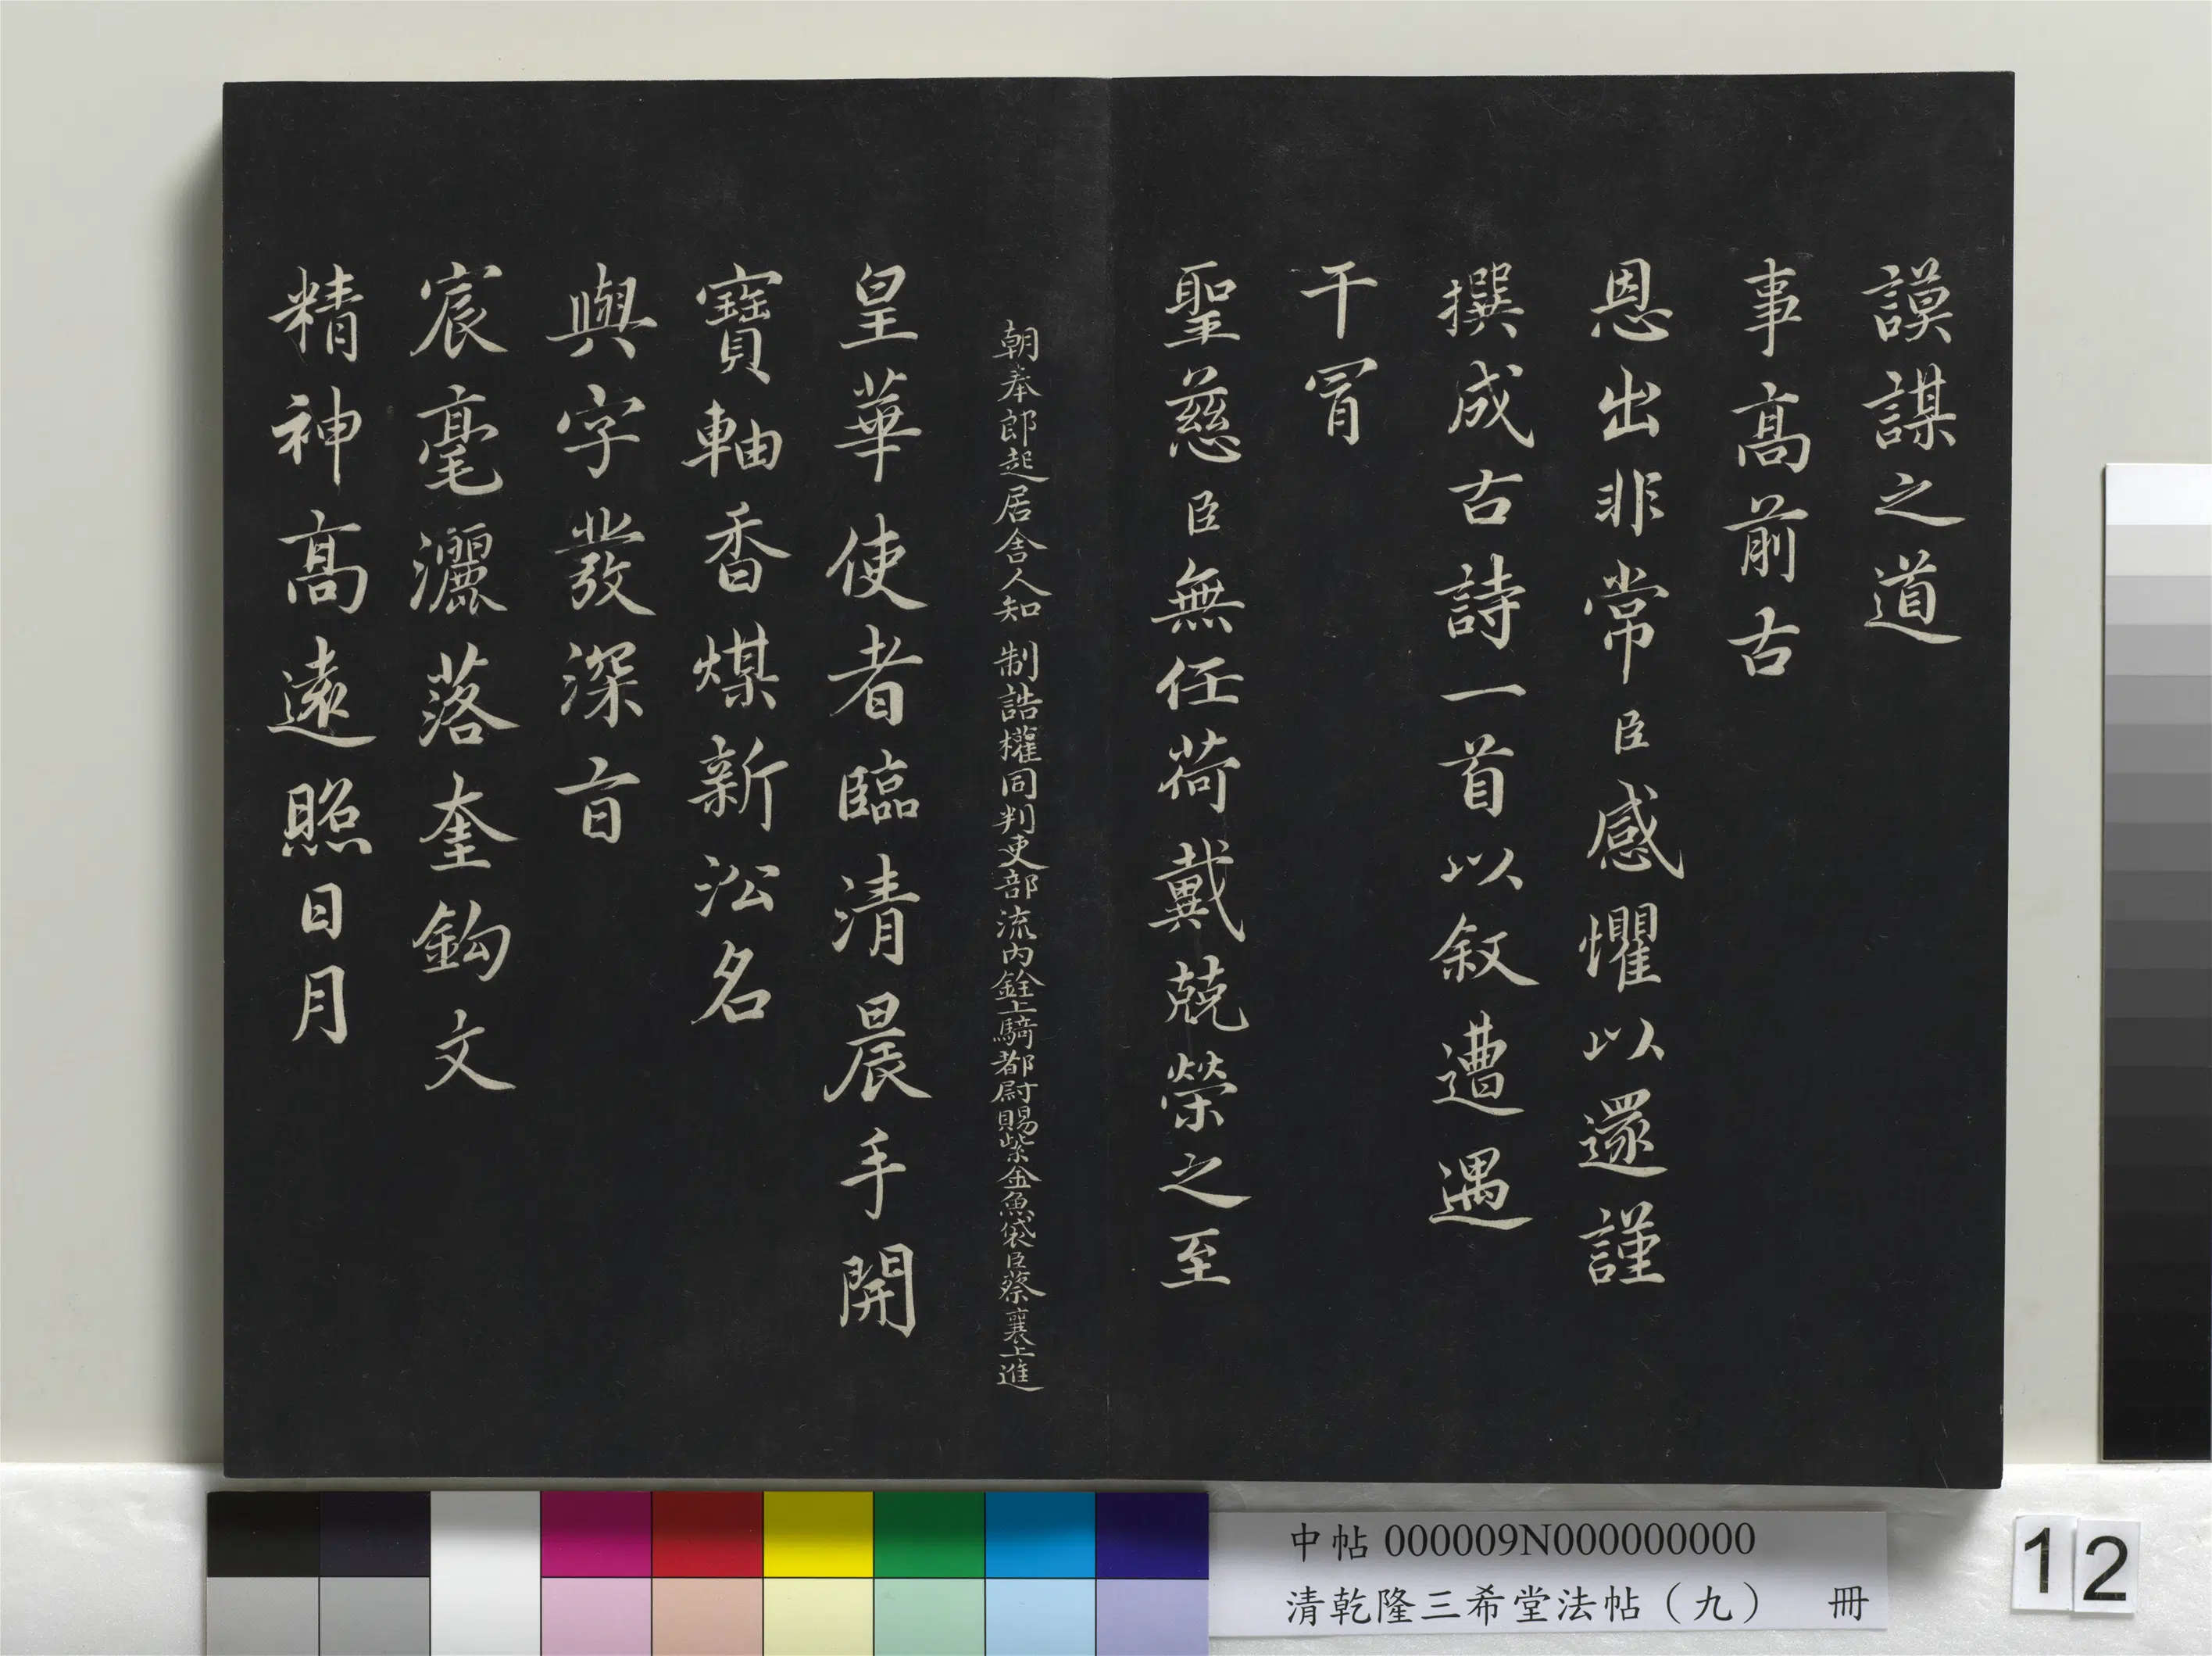 謨謀之道
事高前古
恩出非常臣感懼以還謹
撰成古詩一首以叙遭遇
干冐
聖慈臣無任荷戴兢榮之至
朝奉郎起居舍人知 制誥權同判吏部流内銓上騎都尉賜紫金魚袋臣蔡襄上進
皇華使者臨清晨手開
寶軸香煤新沿名
與字發深㫖
宸毫灑落奎鈎文
精神高遠照日月
中帖 000009N000000000
清乾隆三希堂法帖（九） 冊
12